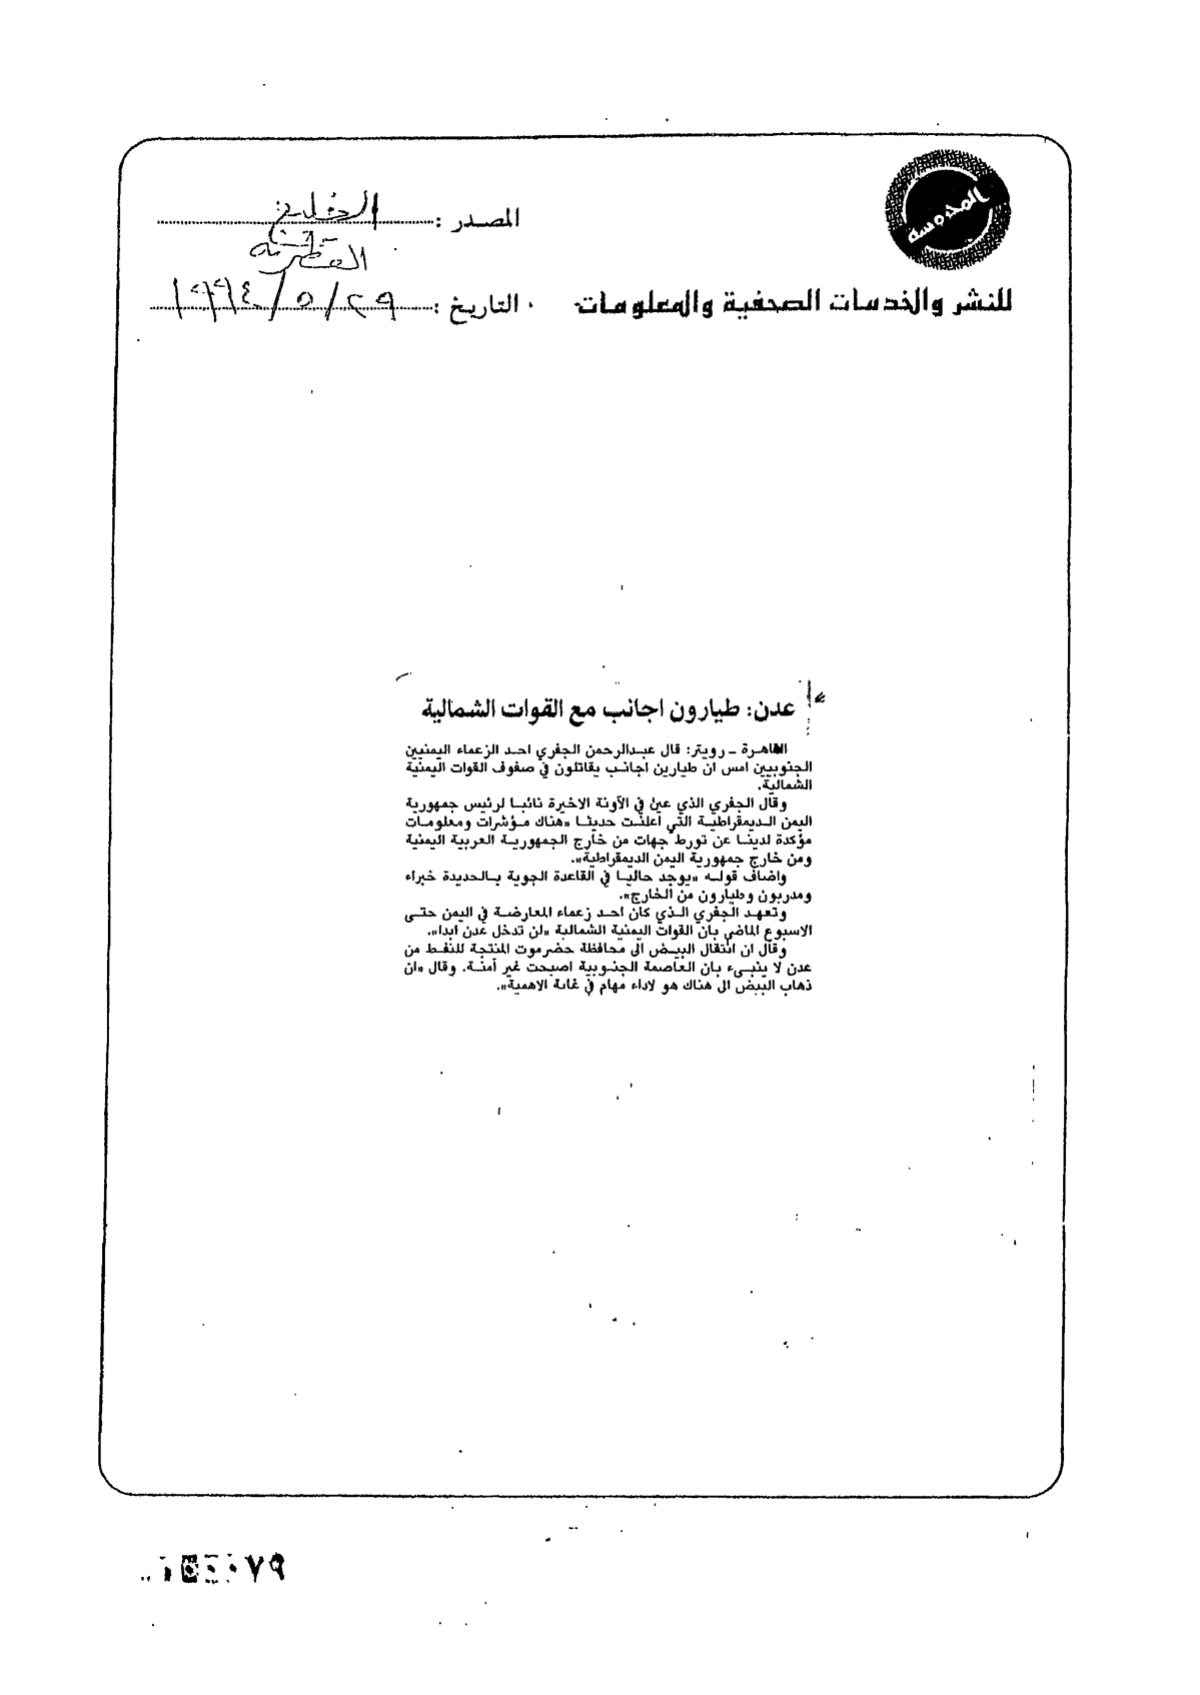 المحروسة
للنشر والخدمات الصحفية والمعلومات
المصدر : الخليج
القطرية
التاريخ : ٢٩ / ٥ / ١٩٩٤
عدن: طيارون اجانب مع القوات الشمالية
القاهرة ـ رويتر: قال عبدالرحمن الجفري احد الزعماء اليمنيين
الجنوبيين امس ان طيارين اجانب يقاتلون في صفوف القوات اليمنية
الشمالية.
وقال الجفري الذي عين في الآونة الاخيرة نائبا لرئيس جمهورية
اليمن الديمقراطية التي اعلنت حديثا «هناك مؤشرات ومعلومات
مؤكدة لدينا عن تورط جهات من خارج الجمهورية العربية اليمنية
ومن خارج جمهورية اليمن الديمقراطية».
واضاف قوله «يوجد حاليا في القاعدة الجوية بالحديدة خبراء
ومدربون وطيارون من الخارج».
وتعهد الجفري الذي كان احد زعماء المعارضة في اليمن حتى
الاسبوع الماضي بان القوات اليمنية الشمالية «لن تدخل عدن ابدا».
وقال ان انتقال البيض الى محافظة حضرموت المنتجة للنفط من
عدن لا ينبىء بان العاصمة الجنوبية اصبحت غير آمنة. وقال «ان
ذهاب البيض الى هناك هو لاداء مهام في غاية الاهمية».